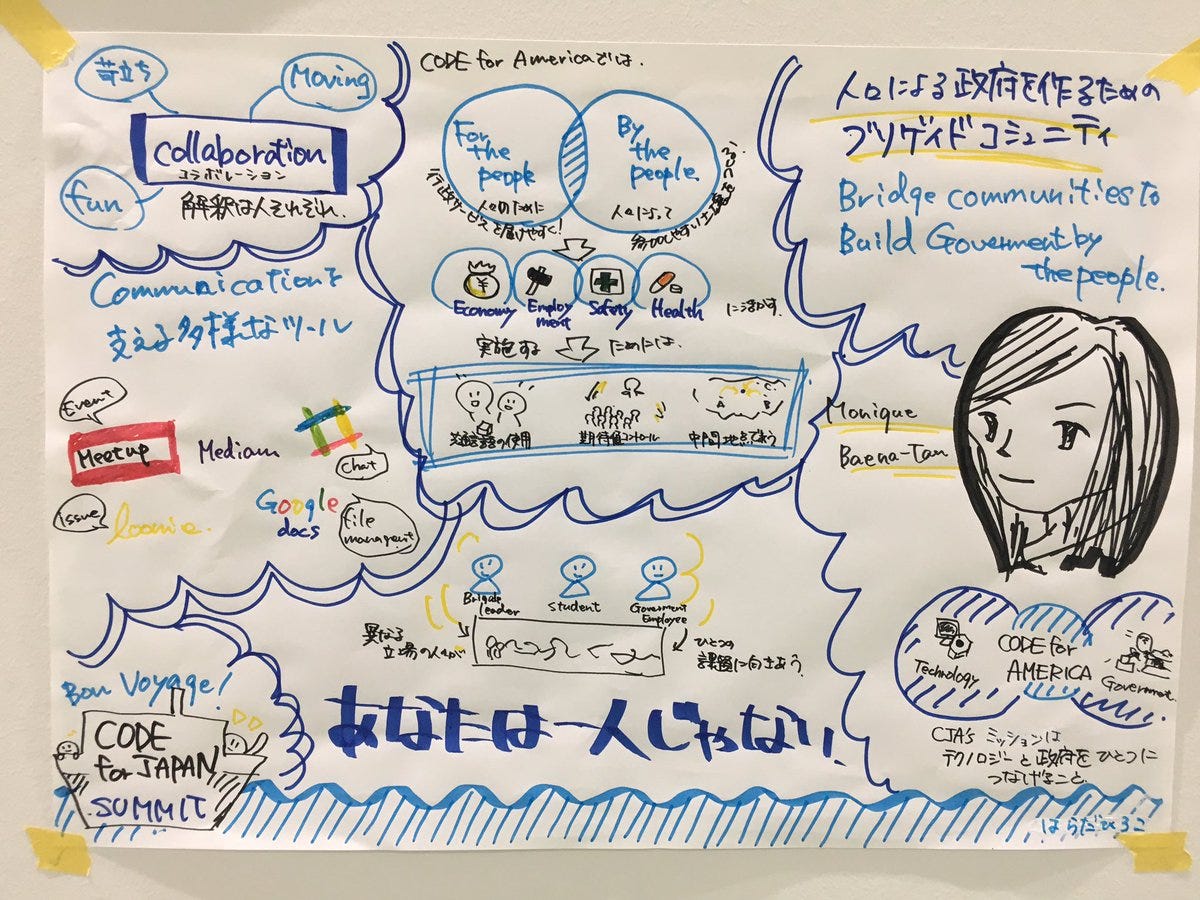 苛立ち
Moving
collaboration
コラボレーション
fun
解釈は人それぞれ.
CODE for Americaでは.
For the people
人々のために
行政サービスを届けやすく!
By the people.
人々によって
に活かす.
Economy
Employment
Safety
Health
実施する
ためには.
共通言語の使用
期待値コントロール
中間地点で会う
A
B
人々による政府を作るための
ブリゲイドコミュニティ
Bridge communities to
Build Goverment by
the people.
Monique
Baena-Tan
Communicationを
支える多様なツール
Event
Meetup
Mediam
chat
issue
loomie.
Google
docs
file
managemt
Brigade
leader
student
Goverment
Employee
異なる
立場の人が
ひとつの
課題に向きあう.
あなたは一人じゃない!
Technology
CODE for
AMERICA
Government.
CJA's ミッションは
テクノロジーと政府をひとつに
つなげること.
Bon Voyage!
CODE
for JAPAN
SUMMIT
はらだひろこ